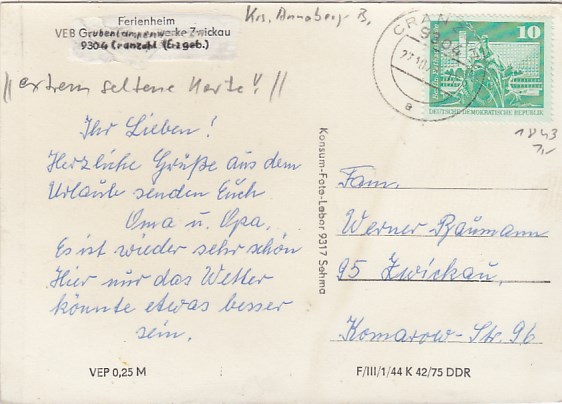 Ferienheim
VEB Grubenlampenwerke Zwickau
9304 Cranzahl (Erzgeb.)
Krs. Annaberg B,
// extrem seltene Karte! //
CRAN
9304
27.10.
a
10
DEUTSCHE DEMOKRATISCHE REPUBLIK
1843
1,-
Ihr Lieben!
Herzliche Grüße aus dem
Urlaub senden Euch
Oma u. Opa.
Es ist wieder sehr schön
Hier nur das Wetter
könnte etwas besser
sein.
Konsum-Foto-Labor 9317 Sehma
Fam.
Werner Baumann
95 Zwickau,
Komarow-Str. 96
VEP 0,25 M
F/III/1/44 K 42/75 DDR